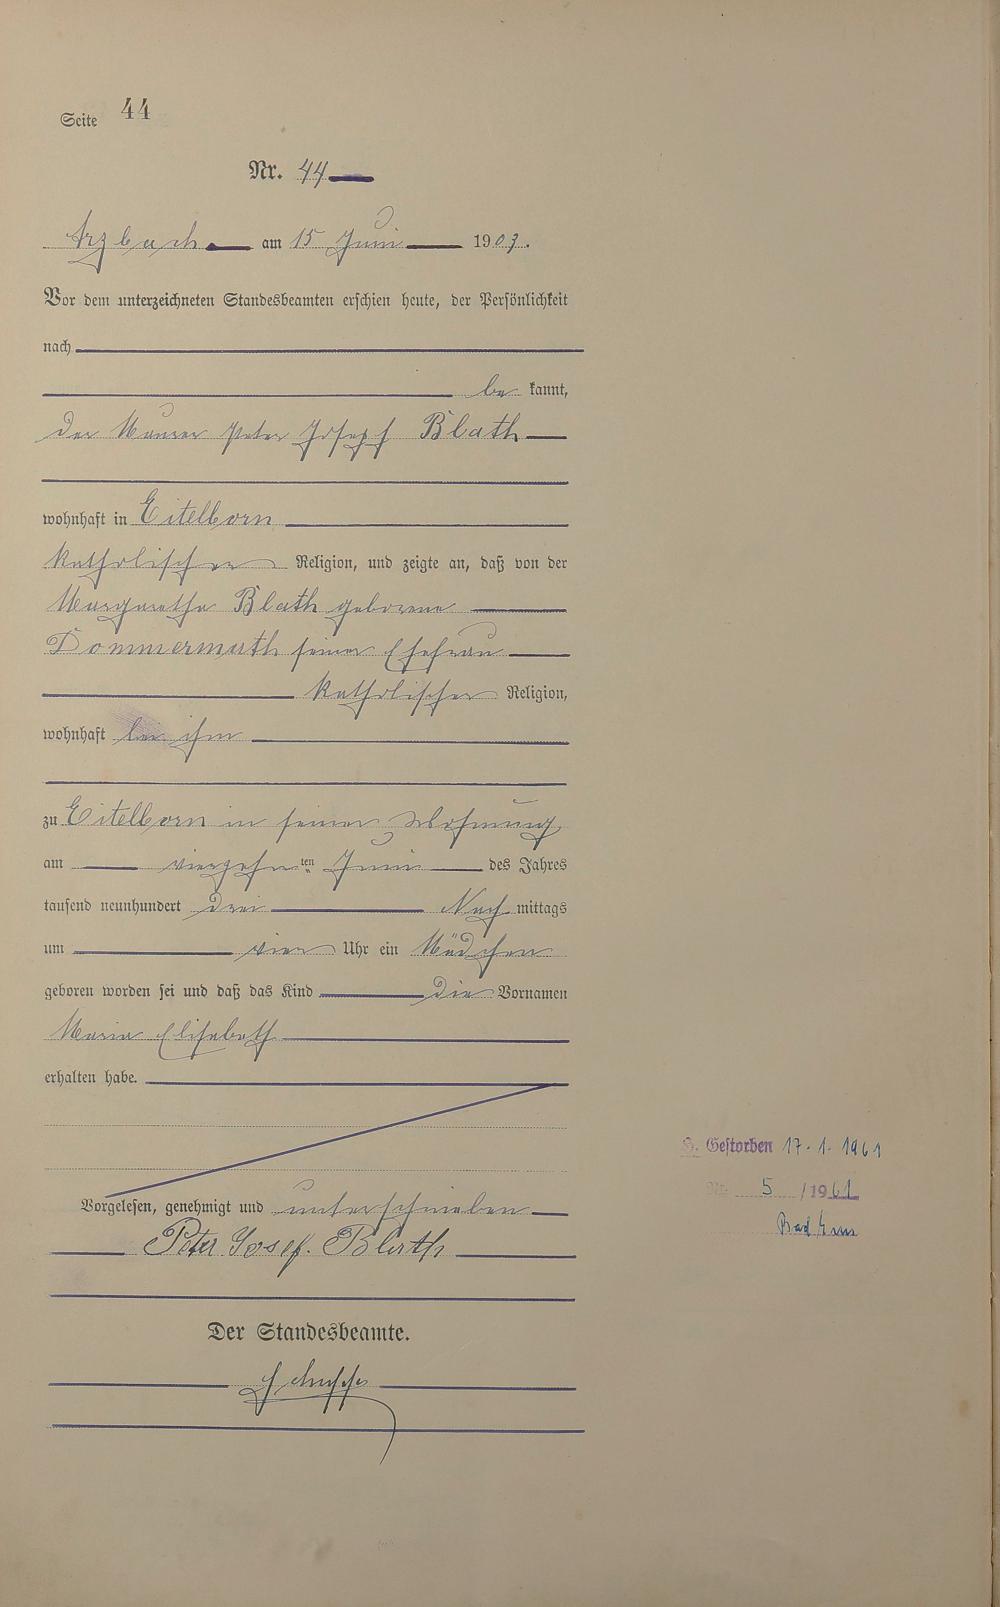 Seite 44
Nr. 44
Arzbach am 15 Juni 1903.
Vor dem unterzeichneten Standesbeamten erschien heute, der Persönlichkeit
nach
be kannt,
der Maurer Peter Joseph Blath
wohnhaft in Eitelborn
katholischer Religion, und zeigte an, daß von der
Margaretha Blath geborene
Dommermuth seiner Ehefrau
katholischer Religion,
wohnhaft bei ihm
zu Eitelborn in seiner Wohnung
am vierzehnten Juni des Jahres
tausend neunhundert drei Nach mittags
um vier Uhr ein Mädchen
geboren worden sei und daß das Kind die Vornamen
Maria Elisabeth
erhalten habe.
Vorgelesen, genehmigt und unterschrieben
Peter Josef. Blath
Der Standesbeamte.
Gestorben 17.1.1961
Nr. 5/1961
Bad Ems